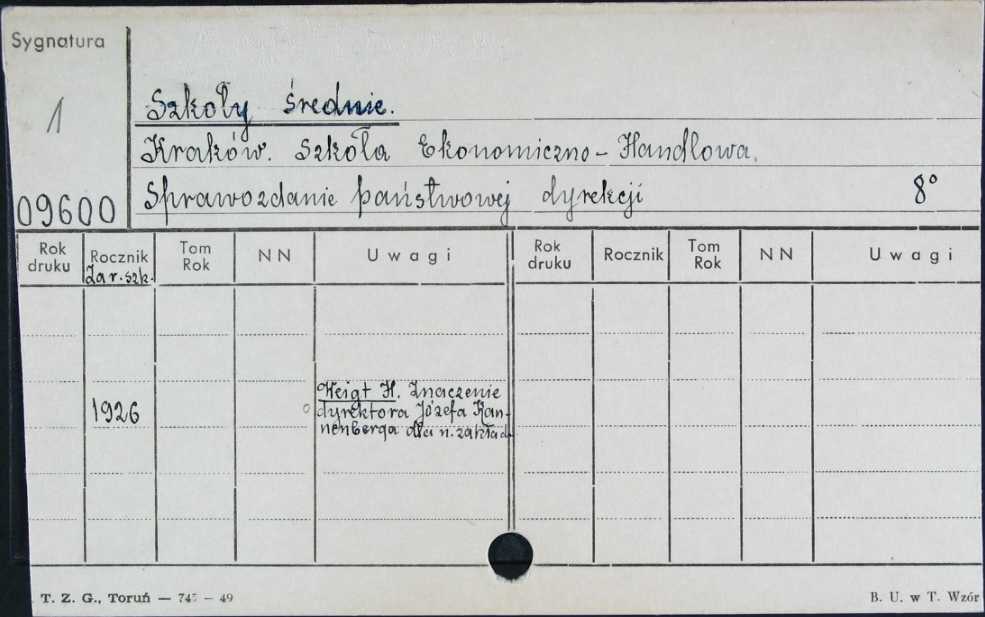 Sygnatura
1
Szkoły średnie.
Kraków. Szkoła Ekonomiczno-Handlowa.
09600
Sprawozdanie państwowej dyrekcji 8°
Rok druku
Rocznik
Zar. szk.
Tom Rok
N N
Uwagi
Rok druku
Rocznik
Tom Rok
N N
Uwagi
1926
Weigt H. Znaczenie
dyrektora Józefa Kan-
nenberga dla n. zakład.
T. Z. G., Toruń — 745 — 49
B. U. w T. Wzór